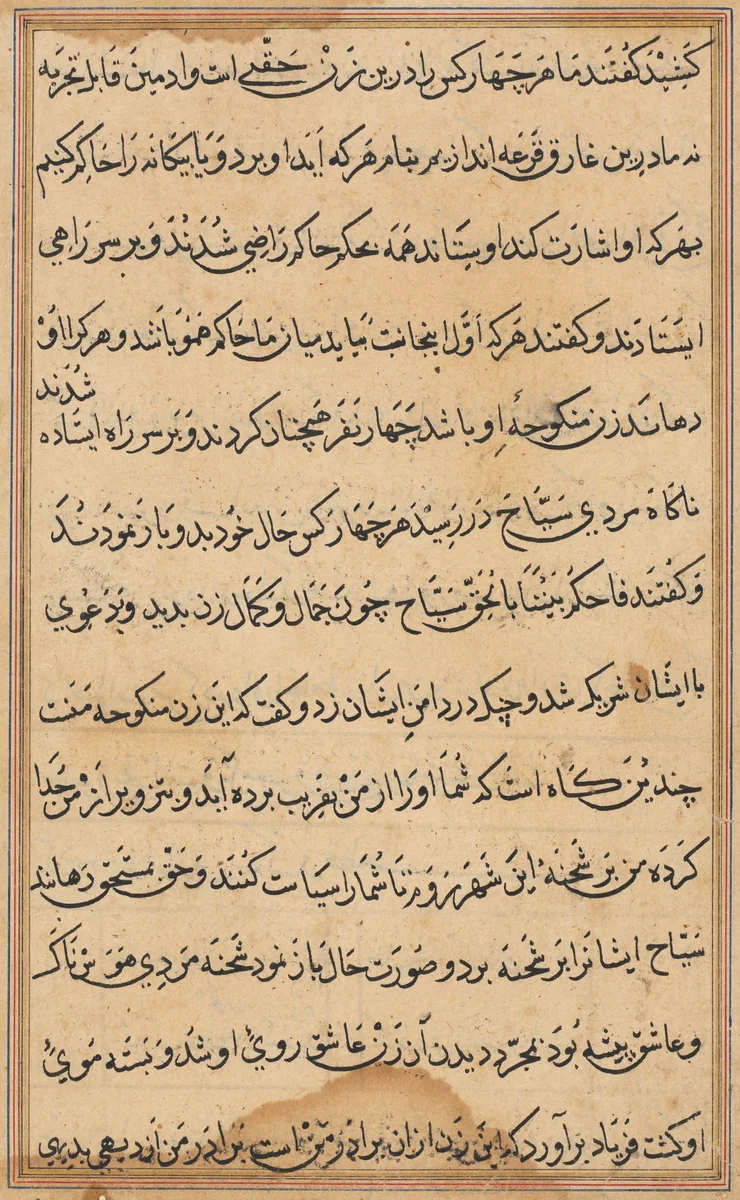 کشید گفتند ما هر چهار کس را درین زن حقی است و ادمین قابل تجربه
نه ما درین غارق قرعه اندازیم بنام هر که آید او برد و یا بیکانه را حاکم کنیم
بهر که او اشارت کند او بستاند همه بحکم حاکم راضی شدند و بر سر راهی
ایستادند و کفتند هر که اوّل اینجانب بیاید میان ما حاکم همو باشد و هر کرا او
دهاند زن منکوحهٔ او باشد چهار نفر همچنان کردند و بر سر راه ایستاده شدند
ناکاه مردی سیّاح در رسید هر چهار کس حال خود بدو باز نمودند
و کفتند فاحکم بیننا بالحق سیّاح چون جمال و کمال زن بدید وبدعوی
با ایشان شریک شد و چنک در دامن ایشان زد و کفت که این زن منکوحه منست
چندین کاه است که شما او را از من بفریب برده اید و بتزویر از من جدا
کرده من بر شحنهٔ این شهر روم تا شما را سیاست کنند و حق بمستحق رهانند
سیّاح ایشانرا بر شحنه برد و صورت حال باز نمود شحنه مردی هوسناک
و عاشق پیشه بود بمجرّد دیدن آن زن عاشق رویٔ او شد و بسته مویٔ
او کشت فریاد برآورد که این زن از ان برادر من است برادر من از دیهی بدیهی